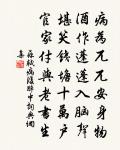 病為兀兀安身物
酒作蓬蓬入腦聲
堪笑錢塘十萬戶
官家付與老書生
蘇軾病後醉中詞典網